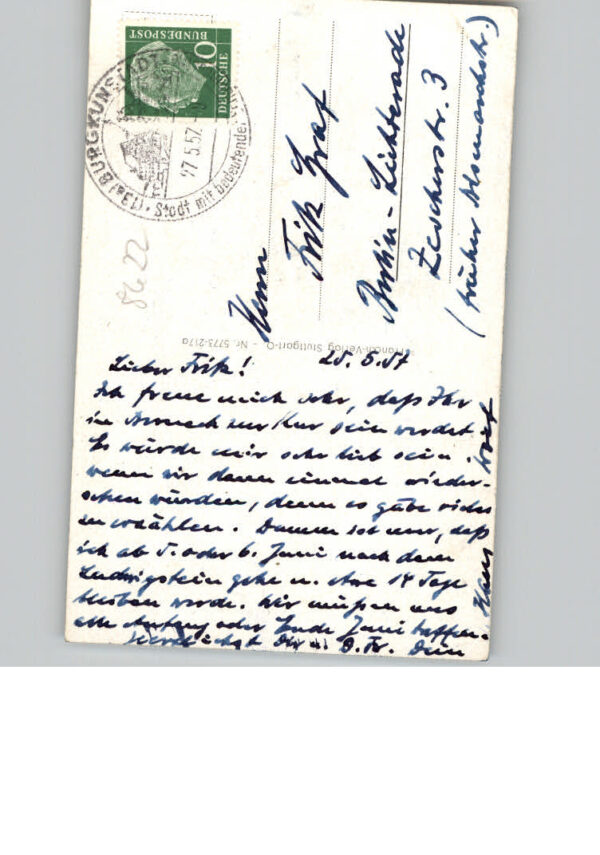 DEUTSCHE
BUNDESPOST
10
BURGKUNSTADT
27.5.57
Stadt mit bedeutender
8622
Herrn
Fritz Graf
Berlin-Lichterade
Zescherstr. 3
(früher Bismarckstr.)
Franckh-Verlag Stuttgart-O. - Nr. 5773-217a
25.5.57
Lieber Fritz!
Ich freue mich sehr, daß Ihr
in zur Kur sein werdet.
Es würde mir sehr lieb sein
wenn wir dann einmal wieder-
sehen würden, denn es gäbe vieles
zu erzählen. Dumm ist nur, daß
ich ab 5. oder 6. Juni nach dem
Ludwigstein gehe u. etwa 14 Tage
bleiben werde. Wir müßen uns
also Anfang oder Ende Juni treffen.
Herzlichst Dein
Hans